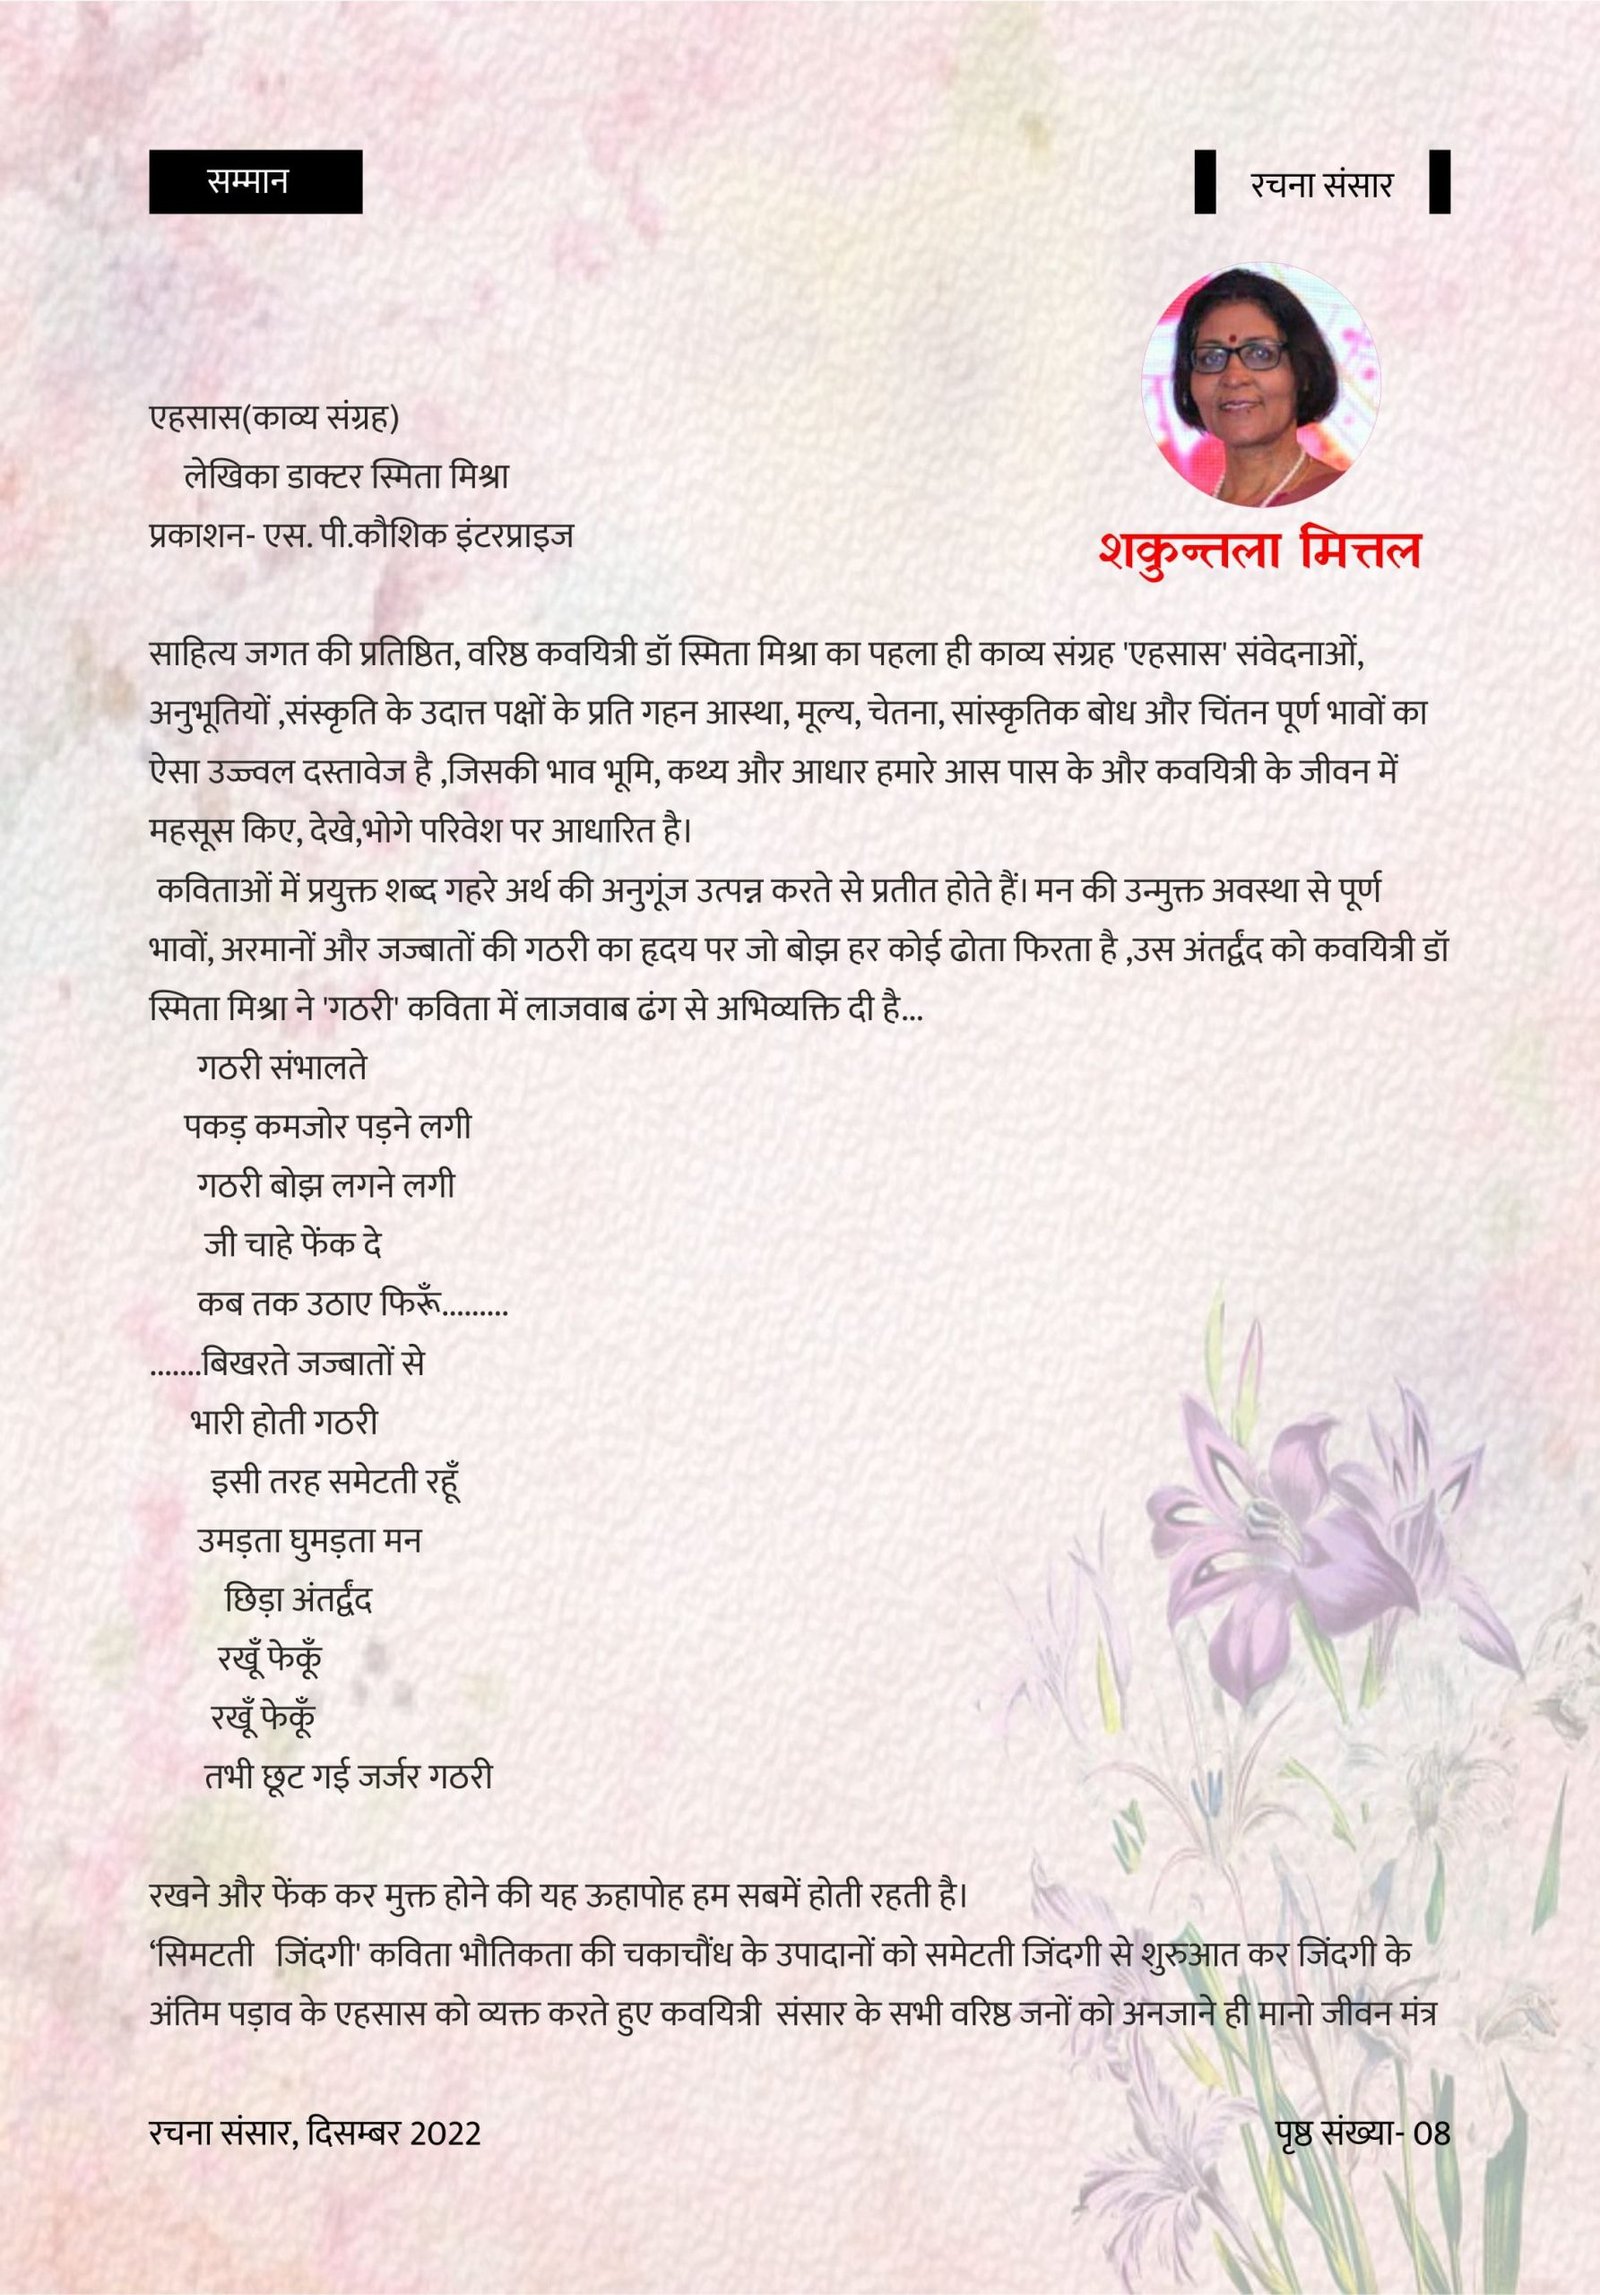 सम्मान
रचना संसार
एहसास(काव्य संग्रह)
लेखिका डाक्टर स्मिता मिश्रा
प्रकाशन- एस. पी.कौशिक इंटरप्राइज
शकुन्तला मित्तल
साहित्य जगत की प्रतिष्ठित, वरिष्ठ कवयित्री डॉ स्मिता मिश्रा का पहला ही काव्य संग्रह 'एहसास' संवेदनाओं,
अनुभूतियों ,संस्कृति के उदात्त पक्षों के प्रति गहन आस्था, मूल्य, चेतना, सांस्कृतिक बोध और चिंतन पूर्ण भावों का
ऐसा उज्ज्वल दस्तावेज है ,जिसकी भाव भूमि, कथ्य और आधार हमारे आस पास के और कवयित्री के जीवन में
महसूस किए, देखे,भोगे परिवेश पर आधारित है।
कविताओं में प्रयुक्त शब्द गहरे अर्थ की अनुगूंज उत्पन्न करते से प्रतीत होते हैं। मन की उन्मुक्त अवस्था से पूर्ण
भावों, अरमानों और जज्बातों की गठरी का हृदय पर जो बोझ हर कोई ढोता फिरता है ,उस अंतर्द्वंद को कवयित्री डॉ
स्मिता मिश्रा ने 'गठरी' कविता में लाजवाब ढंग से अभिव्यक्ति दी है...
गठरी संभालते
पकड़ कमजोर पड़ने लगी
गठरी बोझ लगने लगी
जी चाहे फेंक दे
कब तक उठाए फिरूँ.........
.......बिखरते जज्बातों से
भारी होती गठरी
इसी तरह समेटती रहूँ
उमड़ता घुमड़ता मन
छिड़ा अंतर्द्वंद
रखूँ फेकूँ
रखूँ फेकूँ
तभी छूट गई जर्जर गठरी
रखने और फेंक कर मुक्त होने की यह ऊहापोह हम सबमें होती रहती है।
‘सिमटती जिंदगी' कविता भौतिकता की चकाचौंध के उपादानों को समेटती जिंदगी से शुरुआत कर जिंदगी के
अंतिम पड़ाव के एहसास को व्यक्त करते हुए कवयित्री संसार के सभी वरिष्ठ जनों को अनजाने ही मानो जीवन मंत्र
रचना संसार, दिसम्बर 2022
पृष्ठ संख्या- 08